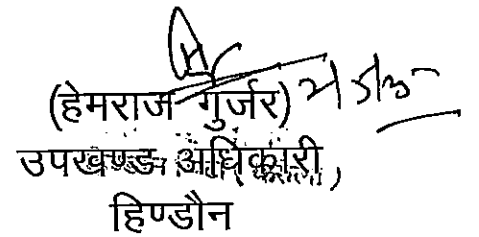 (हेमराज गुर्जर)
उपखण्ड अधिकारी,
हिण्डौन